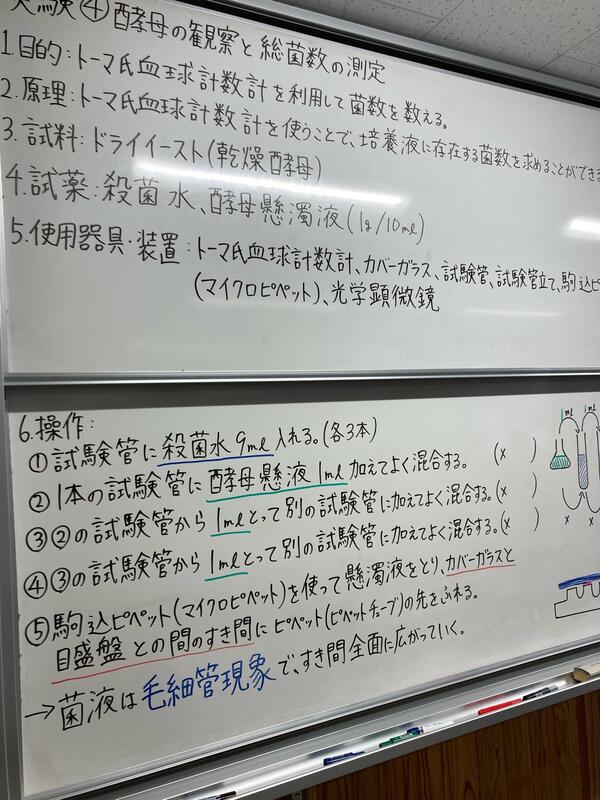 実験④ 酵母の観察と総菌数の測定
1.目的:トーマ氏血球計数計を利用して菌数を数える。
2.原理:トーマ氏血球計数計を使うことで、培養液に存在する菌数を求めることができ
3.試料:ドライイースト(乾燥酵母)
4.試薬:殺菌水、酵母懸濁液(1g/10ml)
5.使用器具・装置:トーマ氏血球計数計、カバーガラス、試験管、試験管立て、駒込ピ
(マイクロピペット)、光学顕微鏡
6.操作:
①試験管に殺菌水9ml入れる。(各3本)
②1本の試験管に酵母懸濁液1ml加えてよく混合する。 (× )
③②の試験管から1mlとって別の試験管に加えてよく混合する。(× )
④③の試験管から1mlとって別の試験管に加えてよく混合する。(× )
⑤駒込ピペット(マイクロピペット)を使って懸濁液をとり、カバーガラスと
目盛盤との間のすき間にピペット(ピペットチューブ)の先をふれる。
→菌液は毛細管現象で、すき間全面に広がっていく。
1ml 1ml
× ×